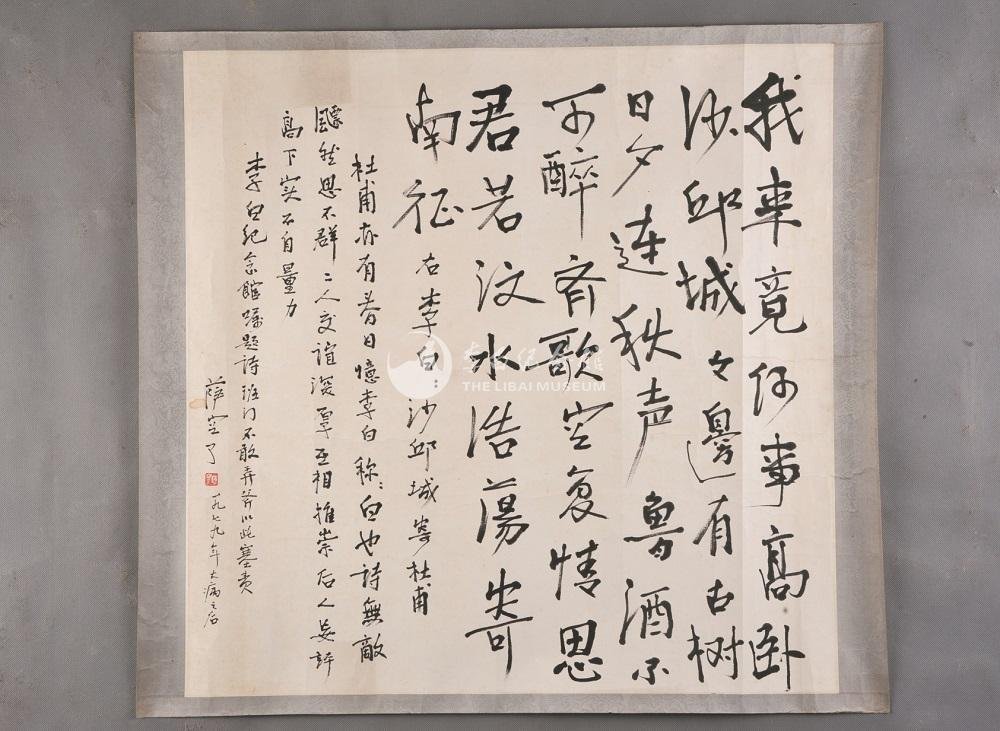 我来竟何事高卧
沙邱城々邊有古树
日夕連秋声魯酒不
可醉齐歌空复情思
君若汶水浩蕩寄
南征 右李白:沙邱城寄杜甫
杜甫亦有春日憶李白称:白也詩無敵
飄然思不群二人交誼深厚互相推崇后人妄評
高下实不自量力
李白纪念館嘱題詩班门不敢弄斧以此塞责
萨空了 一九七九年大病之后
李白纪念馆
THE LIBAI MUSEUM